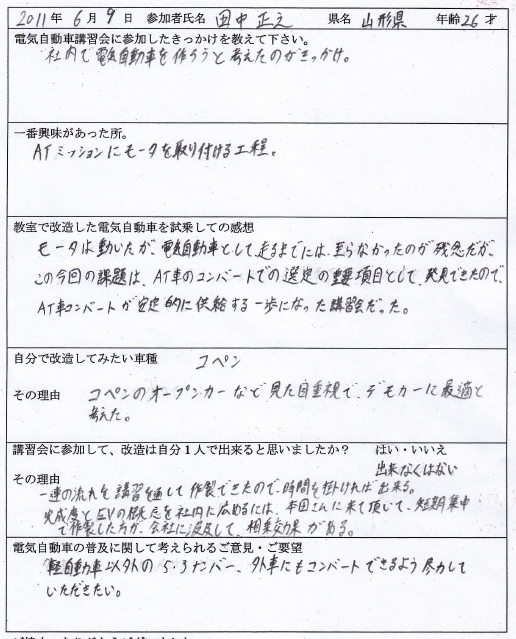 2011年 6月 9日 参加者氏名 田中正之 県名 山形県 年齢26才
電気自動車講習会に参加したきっかけを教えて下さい。
社内で電気自動車を作ろうと考えたのがきっかけ。
一番興味があった所。
ATミッションにモータを取り付ける工程。
教室で改造した電気自動車を試乗しての感想
モータは動いたが、電気自動車として走るまでには、至らなかったのが残念だが、
この今回の課題は、AT車のコンバートでの選定の重要項目として、発見できたので、
AT車コンバートが安定的に供給する一歩になった講習会だった。
自分で改造してみたい車種 コペン
その理由 コペンのオープンカーなど見た目重視で、デモカーに最適と
考えた。
講習会に参加して、改造は自分1人で出来ると思いましたか? はい・いいえ
出来なくはない
その理由
一連の流れを講習を通して作製できたので、時間を掛ければ出来る。
完成度とEVの概念を社内に広めるには、本田さんに来て頂いて、短期集中
で作製した方が、会社に波及して、相乗効果がある。
電気自動車の普及に関して考えられるご意見・ご要望
軽自動車以外の5・3ナンバー、外車にもコンバートできるよう尽力して
いただきたい。